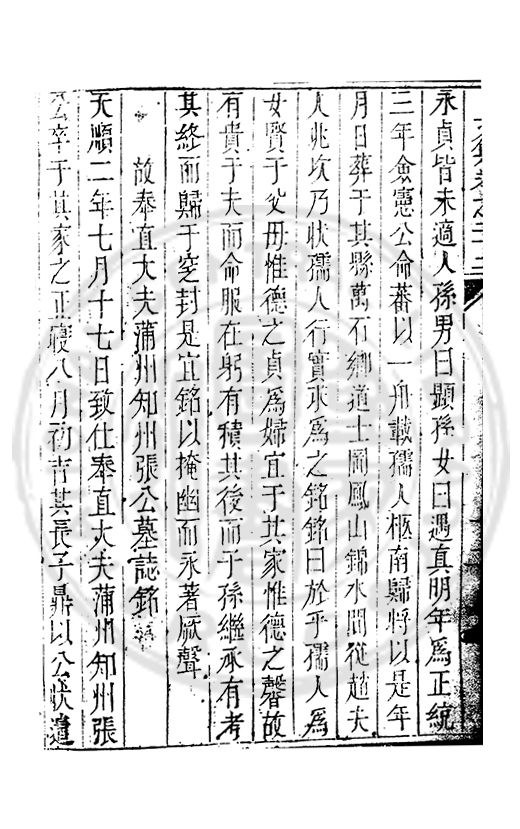 永貞皆未適人孫男曰顯孫女曰遇真明年為正統
三年僉憲公命蕃以一舟載孺人柩南歸將以是年
月日葬于其縣萬石鄉道士岡鳳山錦水間從趙夫
人兆次乃狀孺人行實求為之銘銘曰於乎孺人為
女賢于父母惟德之貞為婦宜于其家惟德之馨故
有貴于夫而命服在躬有積其後而子孫繼承有考
其終而歸于窆封是宜銘以掩幽而永著厥聲
故奉直大夫蒲州知州張公墓誌銘
天順二年七月十七日致仕奉直大夫蒲州知州張
公卒于其家之正寢八月初吉其長子鼎以公狀遣